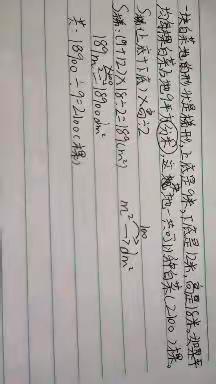 一块白菜地的形状是梯形,上底是9米,下底是12米,高是18米。如果平
均每棵白菜占地9平方分米,这块地一共可以种白菜(2100)棵。
S梯=(上底+下底)×高÷2
S梯:(9+12)×18÷2=189(m²)
189m²=18900dm²
m²→dm²
100
共:18900÷9=2100(棵)